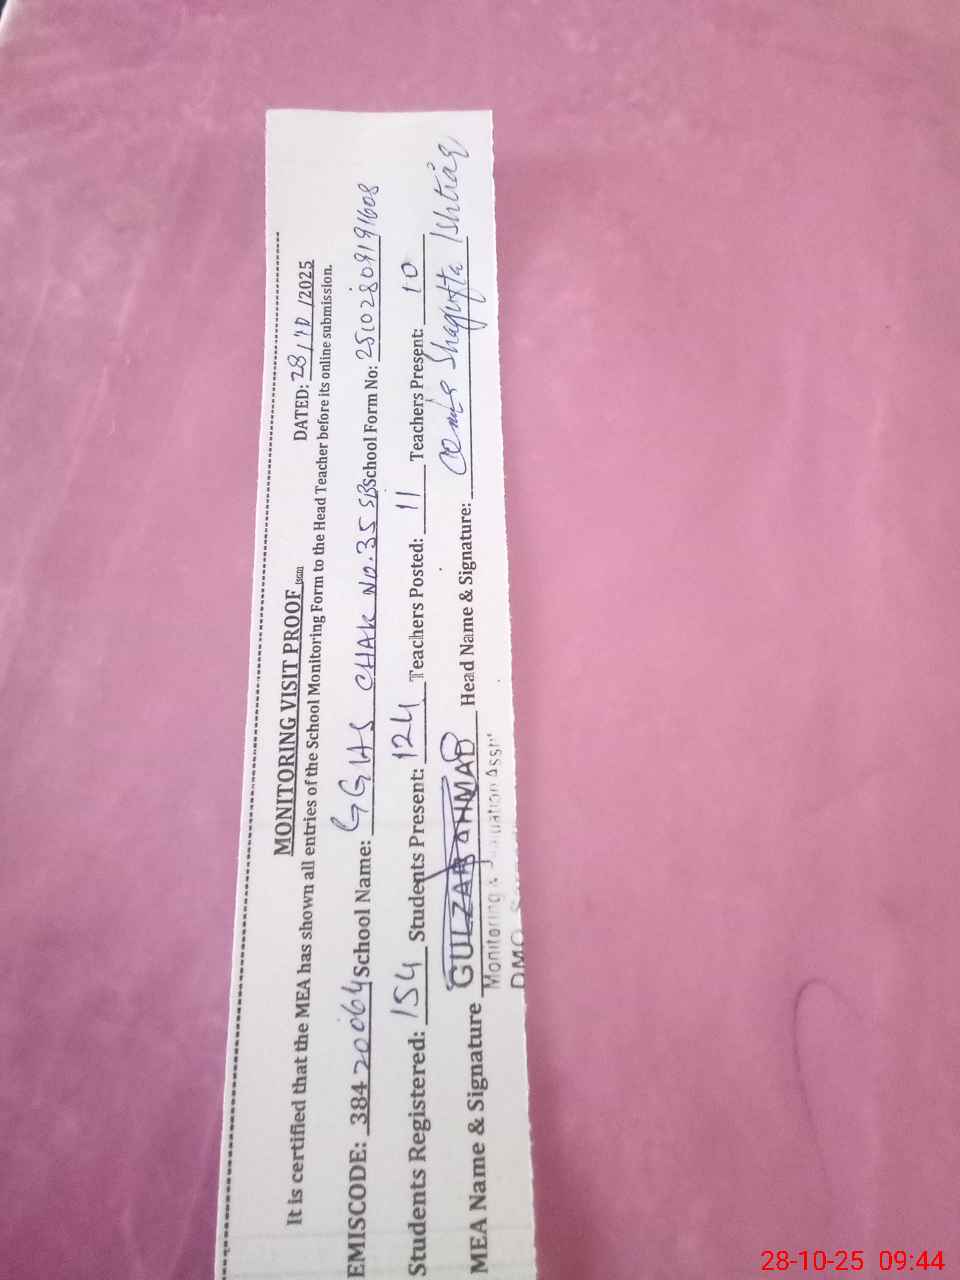 MONITORING VISIT PROOF
DATED: 28/10/2025
It is certified that the MEA has shown all entries of the School Monitoring Form to the Head Teacher before its online submission.
EMISCODE: 38420064 School Name: GGHS CHAK NO. 35 SB School Form No: 25102809191608
Students Registered: 154 Students Present: 124 Teachers Posted: 11 Teachers Present: 10
MEA Name & Signature GULZAR AHMAD Head Name & Signature: Shagufta Ishtiaq
Monitoring &
DMO
28-10-25 09:44